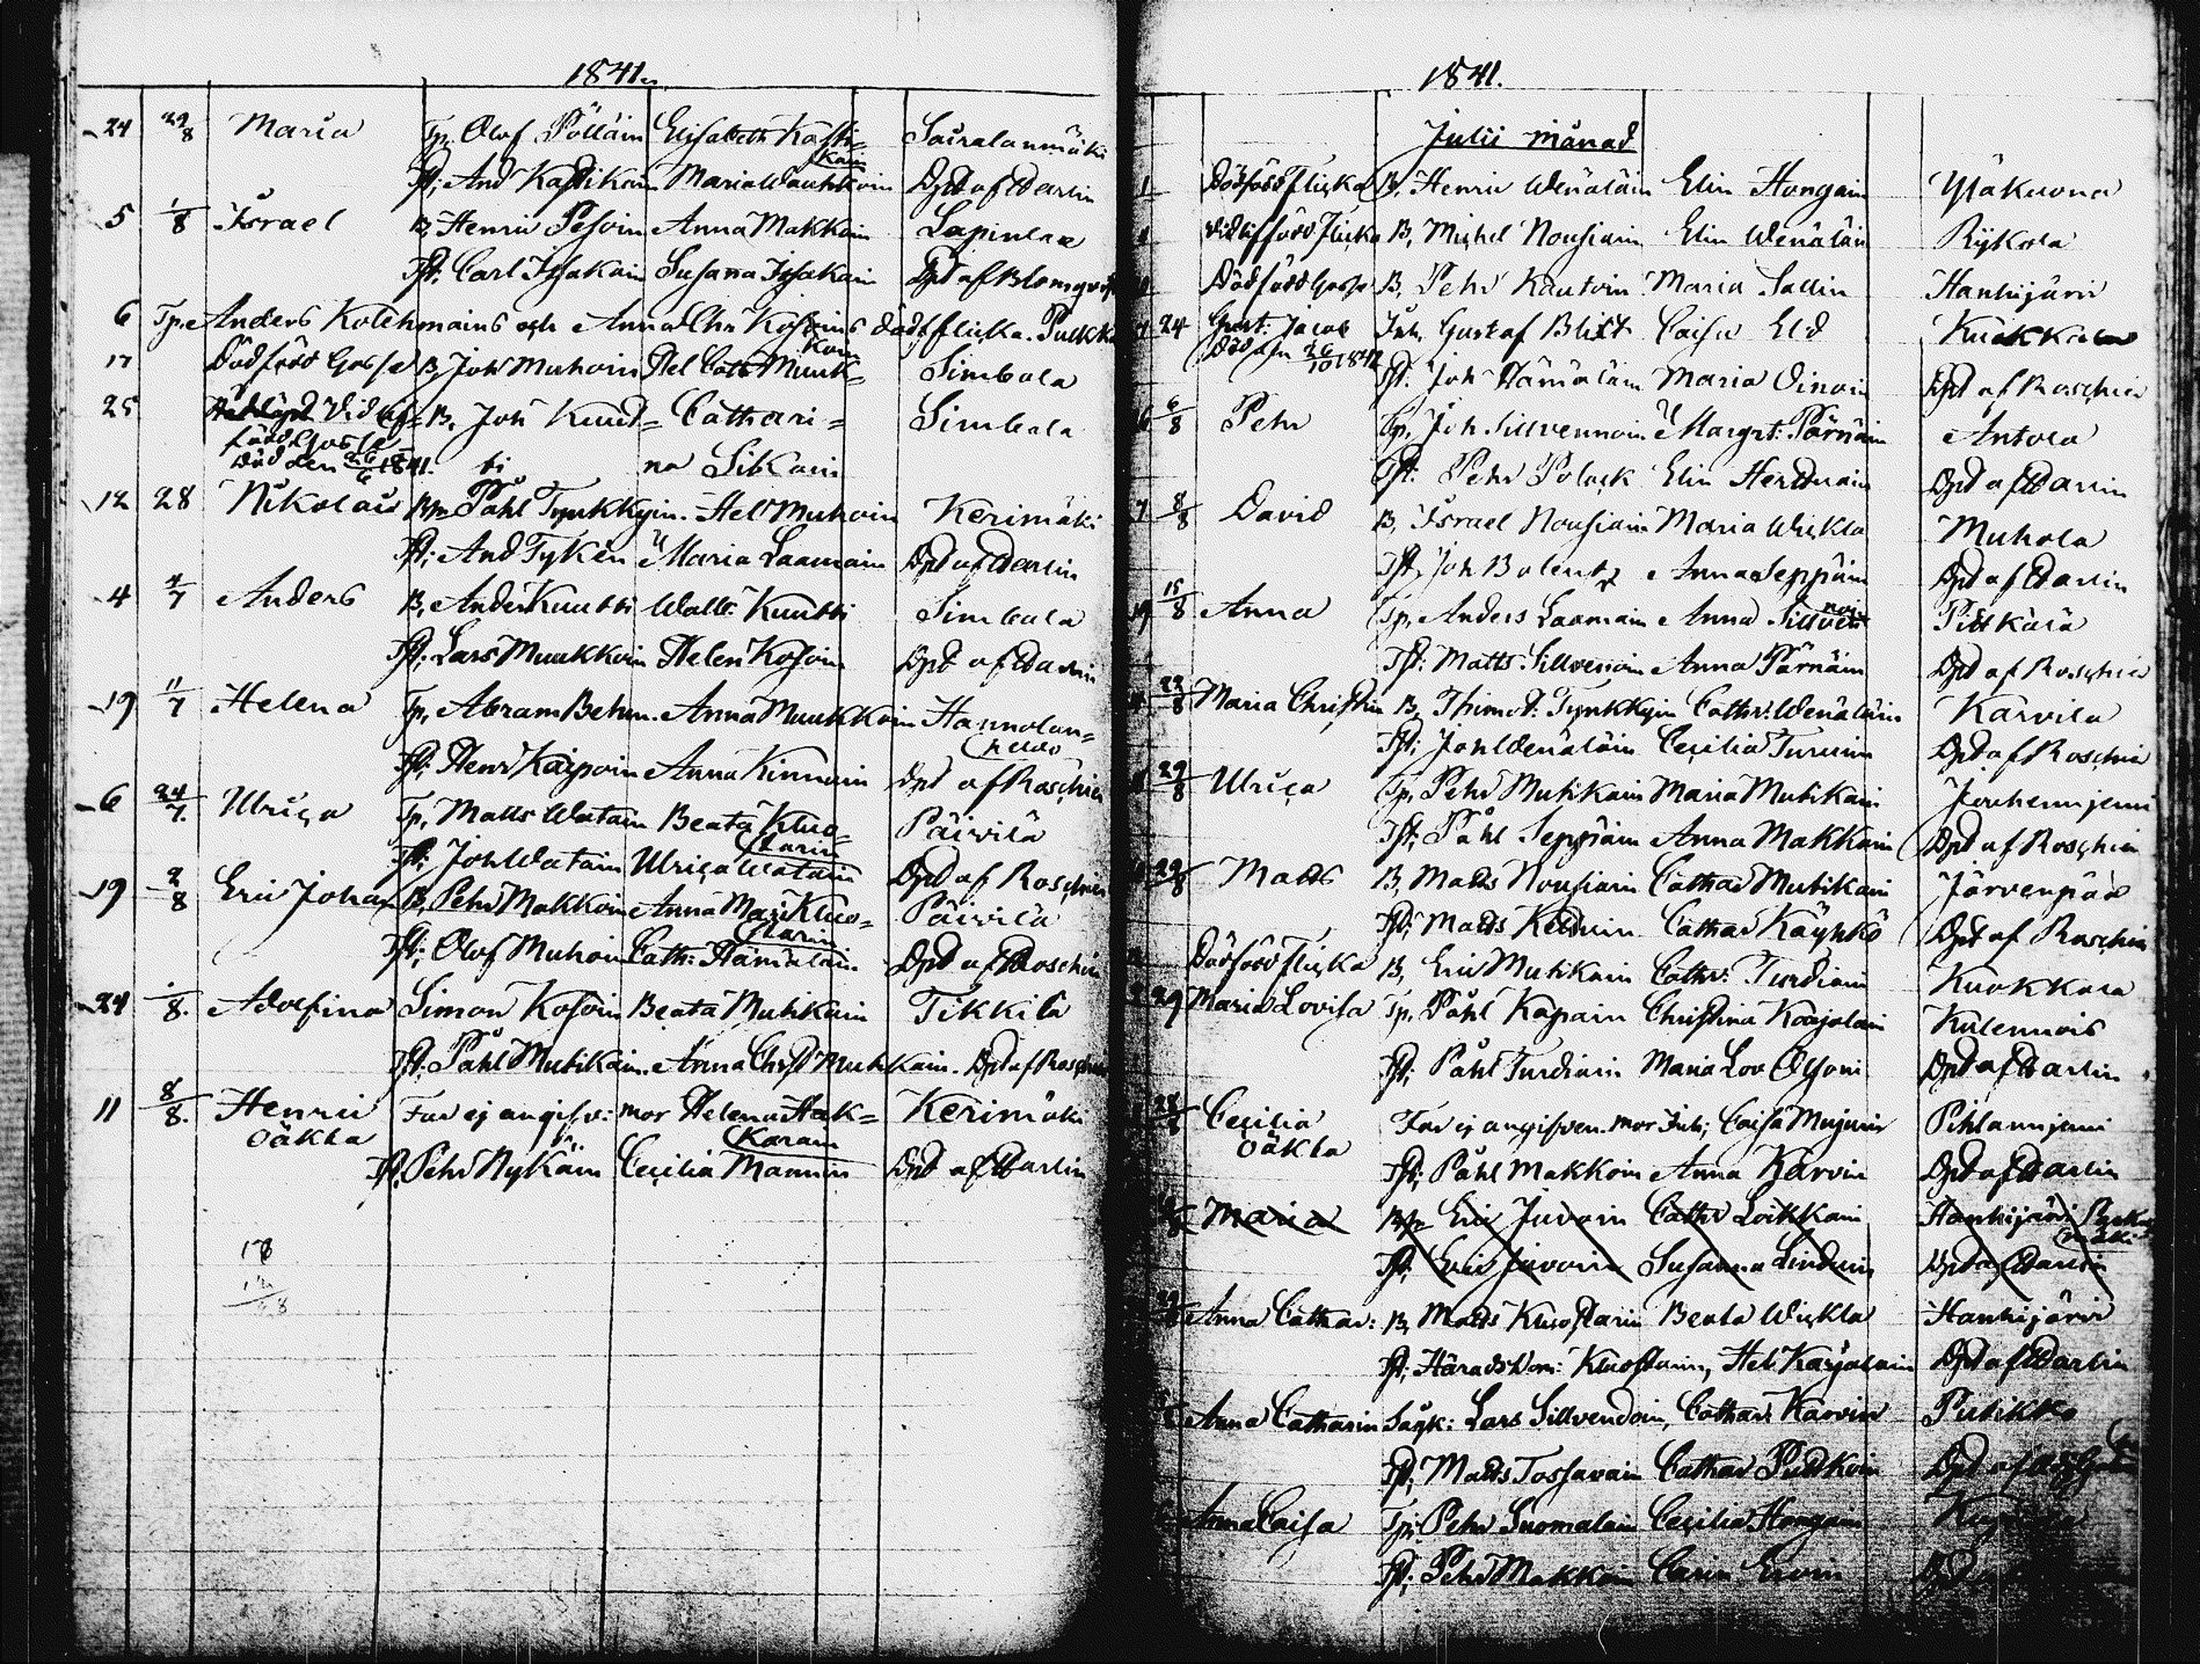 1841.
24 29/8 Maria Tp. Olof Pölläin Elisabeth Kasti=
kain Sairalanmäki
Tst: And Kastikain Maria Wauhkoin Dpt af Warlin
5 1/8 Israel B. Henric Pesoin Anna Makkoin Lapinlax
Tst: Carl Issakain Susana Issakain Dpt af Blomqvist
6 Tp. Anders Kolehmains och Anna Chr dödf flicka.
17 Dödfödd Gosse B. Joh Muhoin Hel Cath Muuk=
koin Simbala
25 Vid lif= B. Joh Kuut= Cathari= Simbala
född Gosse
Död den 26/6 1841. ti na Sikain
12 28 Nikolai Påhl Tynkkyin. Hel Muhoin Kerimäki
Tst: And Tykén Maria Laamain Dpt af Warlin
4 4/7 Anders B. Anders Kuutti Walb: Kuutti Simbala
Tst: Lars Muukkoin Helen Kosoin Dpt af Warlin
19 11/7 Helena Tp. Abram Behm. Anna Muukkoin Hannolan=
Tst: Henr Kaipoin Anna Kinnuin Dpt af Roschier
6 24/7. Ulrica Tp. Matts Watain Beata Kuo=
starin Päivilä
Tst: Joh Watain Ulrica Watain Dpt af Roschier
19 2/8 Eric Johan B. Pehr Makkoin Anna Mari Kuo=
starin Päivilä
Tst: Olof Muhoin Cath: Hämäläin Dpt af Roschier
24 1/8. Adolfina Simon Kosoin Beata Mutikain Tikkila
Tst: Påhl Mutikain. Anna Christ Mutikain. Dpt af Roschier
11 8/8. Henric Far ej angifv: mor Helena Hak=
oäkta karain Kerimäki
Tst: Pehr Nykäin Cecilia Mannin Dpt af Warlin
1841.
Julii månad
1 Dödfödd Flicka B. Henric Wenäläin Elin Hongain Yläkuona
Vid lif född Flicka B. Michel Nousiain Elin Wenäläin Rykola
Dödfödd Gosse B. Pehr Kautoin Maria Sallin Hanhijärvi
24 Gust: Jacob Inh. Gustaf Blixt Caisa Eld Kuokkala
Död den 26/10 1842
Tst: Joh Hämäläin Maria Oinoin Dpt af Roschier
6/8 Pehr Tp. Joh Sillvennoin Margrt: Pärnäin Antola
Tst: Pehr Polack Elin Herttuain Dpt af Warlin
7 8/8 David B. Israel Nousiain Maria Wickla Muhola
Tst. Joh Bolentz Anna Seppäin Dpt af Warlin
15/8 Anna Tp. Anders Laamain Anna Sillven
noin Pitkälä
Tst: Matts Sillvenoin Anna Pärnäin Dpt af Roschier
22/8 Maria Christin B. Thimot: Tynkkyin Cathr: Wenäläin Karvila
Tst: Joh Wenäläin Cecilia Turuin Dpt af Roschier
29/8 Ulrica Tp. Pehr Mutikain Maria Mutikain Jouhenniemi
Tst: Påhl Seppäin Anna Makkoin Dpt af Roschier
29/8 Matts B. Matts Nousiain Cathar Mutikain Järvenpää
Tst: Matts Keltuin Cathar Käyhkö Dpt af Roschier
Dödfödd Flicka B. Eric Mutikain Cathr: Turtiain Kuokkala
29 Maria Lovisa Tp. Påhl Kapain Christina Koajalain Kulennois
Tst: Påhl Turtiain Maria Lov Olsoni Dpt af Warlin
Cecilia Far ej angifven. mor Inh; Caisa Mujuin Pihlanniemi
oäkta
Tst: Påhl Makkoin Anna Karvin Dpt af Warlin
Maria Eric Juvoin Cathr Loikkain Hanhijärvi
Tst; Eric Juvoin Susanna Linduin Dpt af Warlin
Anna Cathar: B. Matts Kuostarin Beata Wickla Hanhijärvi
Tst; Häradsdom: Kuostarin, Hel Karjalain Dpt af Warlin
Anna Catharin Sågk: Lars Sillvendoin, Cathar Karvin Putikko
Tst; Matts Tossavain Cathar Puttkoin Dpt af
Anna Caisa Tp; Pehr Suomalain Cecilia Hongain
Tst; Pehr Makkoin Carin